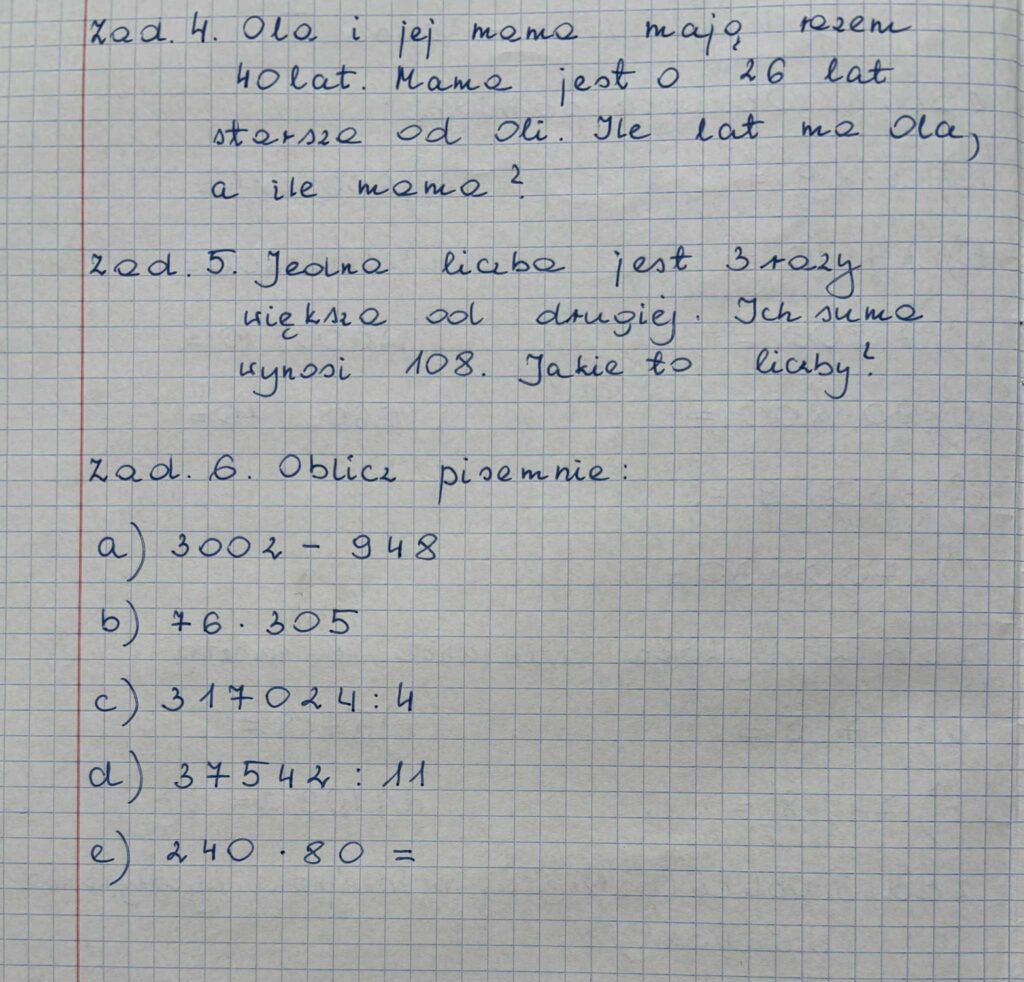 Zad. 4. Ola i jej mama mają razem
40 lat. Mama jest o 26 lat
starsza od Oli. Ile lat ma Ola,
a ile mama?
Zad. 5. Jedna liczba jest 3 razy
większa od drugiej. Ich suma
wynosi 108. Jakie to liczby?
Zad. 6. Oblicz pisemnie:
a) 3002 - 948
b) 76 · 305
c) 317024 : 4
d) 37542 : 11
e) 240 · 80 =